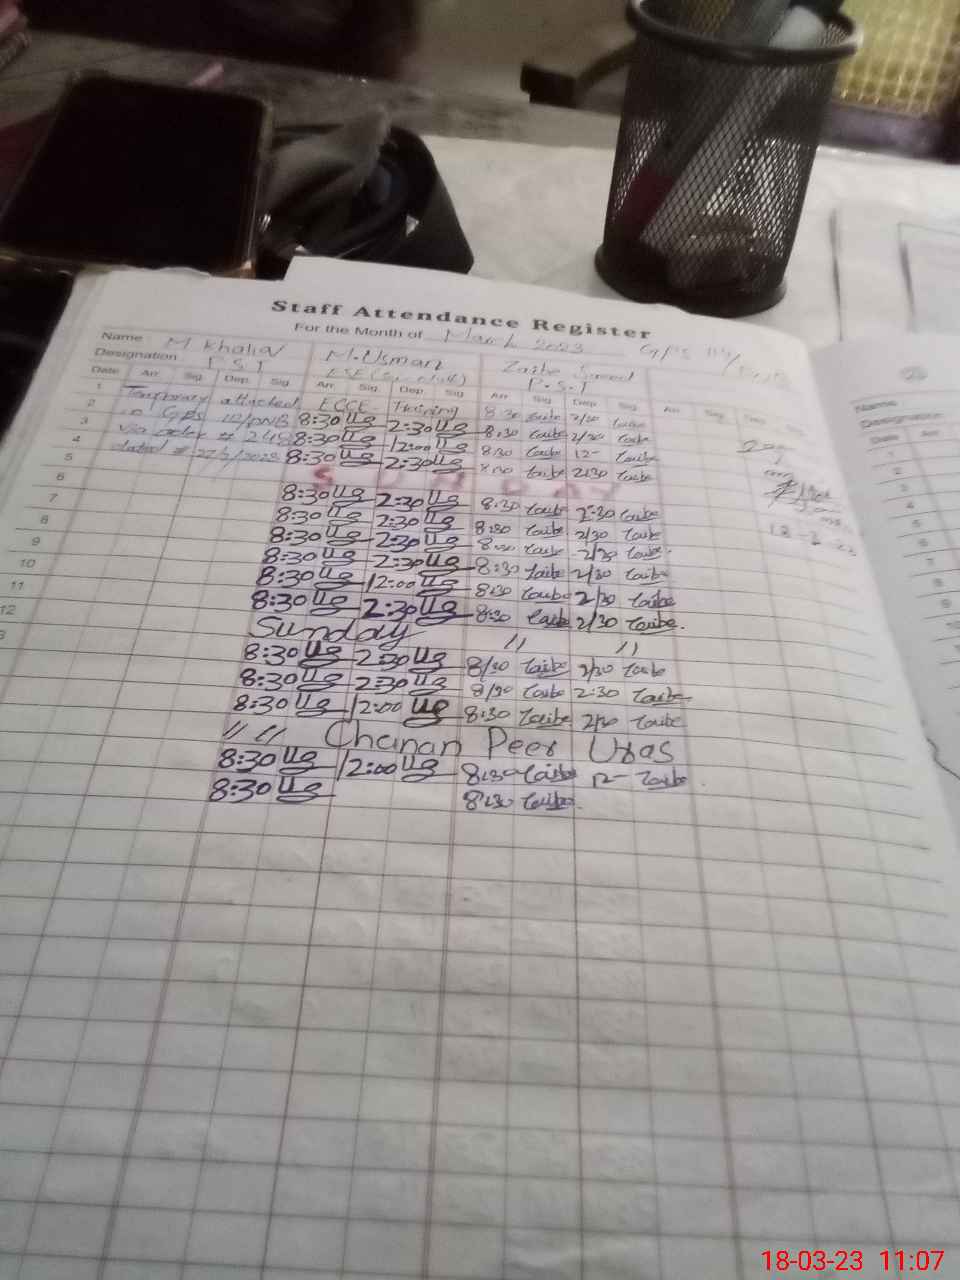 Staff Attendance Register
For the Month of March 2023
Name M Khalid M.Usman Zaibe Saeed
Designation P.S.T P.S.T
Date Arr. Sig. Dep. Sig. Arr. Sig. Dep. Sig. Arr. Sig. Dep. Sig. Arr. Sig. Dep. Sig.
1 Temporary attached ECCE Training 8:30 2/30
2 in GPS 112/PNB 8:30 Ug 2:30 Ug 8:30 taibe 2/30 taibe
3 via order # 248 8:30 Ug 12:00 Ug 8:30 taibe 12- taibe
4 dated 8:30 Ug 2:30 Ug taibe 2:30 taibe
5 SUNDAY
6 8:30 Ug 2:30 Ug 8:30 taibe 2:30 taibe
7 8:30 Ug 2:30 Ug 8:30 taibe 2/30 taibe
8 8:30 Ug 2:30 Ug 8:30 taibe 2/30 taibe
9 8:30 Ug 2:30 Ug 8:30 taibe 2/30 taibe
10 8:30 Ug 12:00 Ug 8:30 taibe 2/30 taibe
11 8:30 Ug 2:30 Ug 8:30 taibe 2/30 taibe.
12 Sunday // //
8:30 Ug 2:30 Ug 8/30 taibe 2/30 taibe
8:30 Ug 2:30 Ug 8/30 taibe 2:30 taibe
8:30 Ug 12:00 Ug 8:30 taibe 2/30 taibe
// // Chanan Peer Uras
8:30 Ug 12:00 Ug 8:30 taibe 12- taibe.
8:30 Ug 8:30 taibe.
Name
Designation
Date
1
2
3
4
5
6
7
8
9
18-03-23 11:07